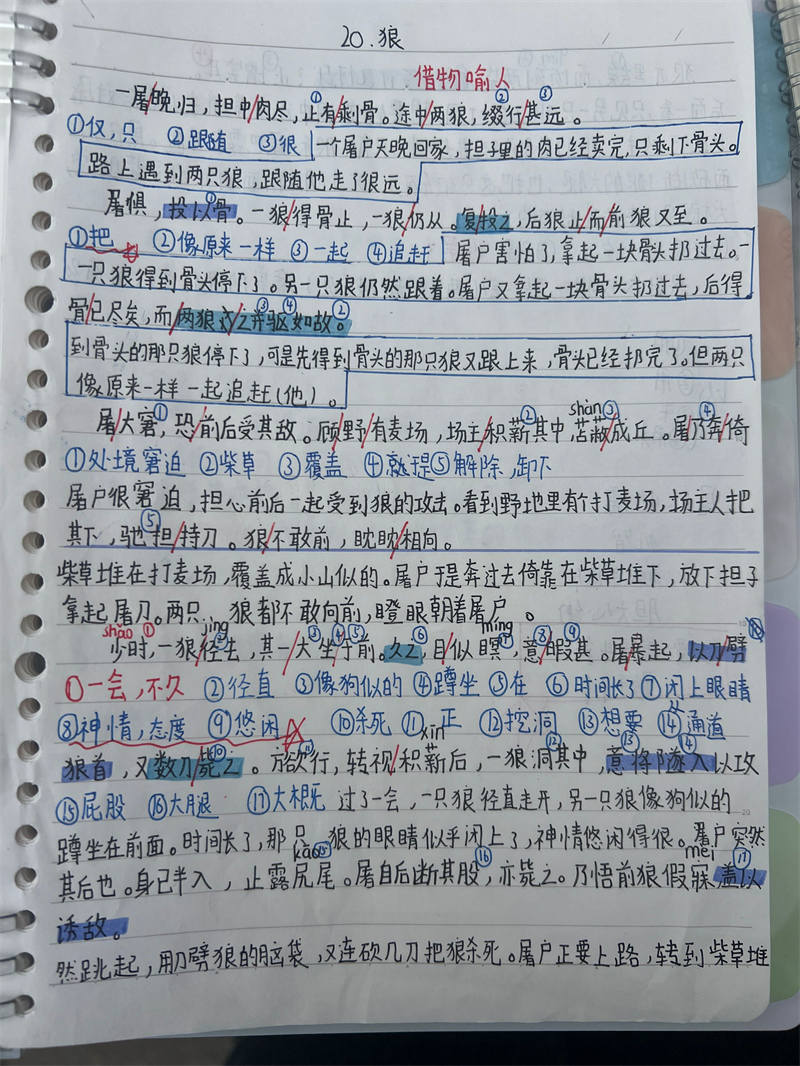 20.狼
借物喻人
一屠晚归，担中肉尽，止①有剩骨。途中两狼，缀②行甚③远。
①仅，只 ②跟随 ③很 一个屠户天晚回家，担子里的肉已经卖完，只剩下骨头。
路上遇到两只狼，跟随他走了很远。
屠惧，投以①骨。一狼得骨止，一狼仍从。复投之，后狼止而前狼又至。
①把 ②像原来一样 ③一起 ④追赶 屠户害怕了，拿起一块骨头扔过去。一
一只狼得到骨头停下了。另一只狼仍然跟着。屠户又拿起一块骨头扔过去，后得
骨已尽矣，而两狼之并③驱④如故②。
到骨头的那只狼停下了，可是先得到骨头的那只狼又跟上来，骨头已经扔完了。但两只
像原来一样一起追赶（他）。
屠大窘①，恐前后受其敌。顾野有麦场，场主积薪②其中，苫shàn蔽③成丘。屠乃④奔倚
①处境窘迫 ②柴草 ③覆盖 ④就，是 ⑤解除，卸下
屠户很窘迫，担心前后一起受到狼的攻击。看到野地里有个打麦场，场主人把
其下，驰⑤担持刀。狼不敢前，眈眈相向。
柴草堆在打麦场，覆盖成小山似的。屠户于是奔过去倚靠在柴草堆下，放下担子
拿起屠刀。两只 狼都不敢向前，瞪眼朝着屠户。
shǎo① jìng② ③ ④ ⑤ ⑥ míng⑦ ⑧ ⑨ ⑩
少时，一狼径去，其一犬坐于前。久之，目似瞑，意暇甚。屠暴起，以刀劈
①一会，不久 ②径直 ③像狗似的 ④蹲坐 ⑤在 ⑥时间长了 ⑦闭上眼睛
⑧神情，态度 ⑨悠闲 ⑩杀死 ⑪正 ⑫挖洞 ⑬想要 ⑭通道
狼首，又数刀毙⑩之。方⑪欲行，转视积薪xīn后，一狼洞⑫其中，意⑬将隧⑭入以攻
⑮屁股 ⑯大腿 ⑰大概 过了一会，一只狼径直走开，另一只狼像狗似的
蹲坐在前面。时间长了，那只 狼的眼睛似乎闭上了，神情悠闲得很。屠户突然
其后也。身已半入，止露尻kāo⑮尾。屠自后断其股⑯，亦毙之。乃悟前狼假寐mèi，盖⑰以
诱敌。
然跳起，用刀劈狼的脑袋，又连砍几刀把狼杀死。屠户正要上路，转到柴草堆